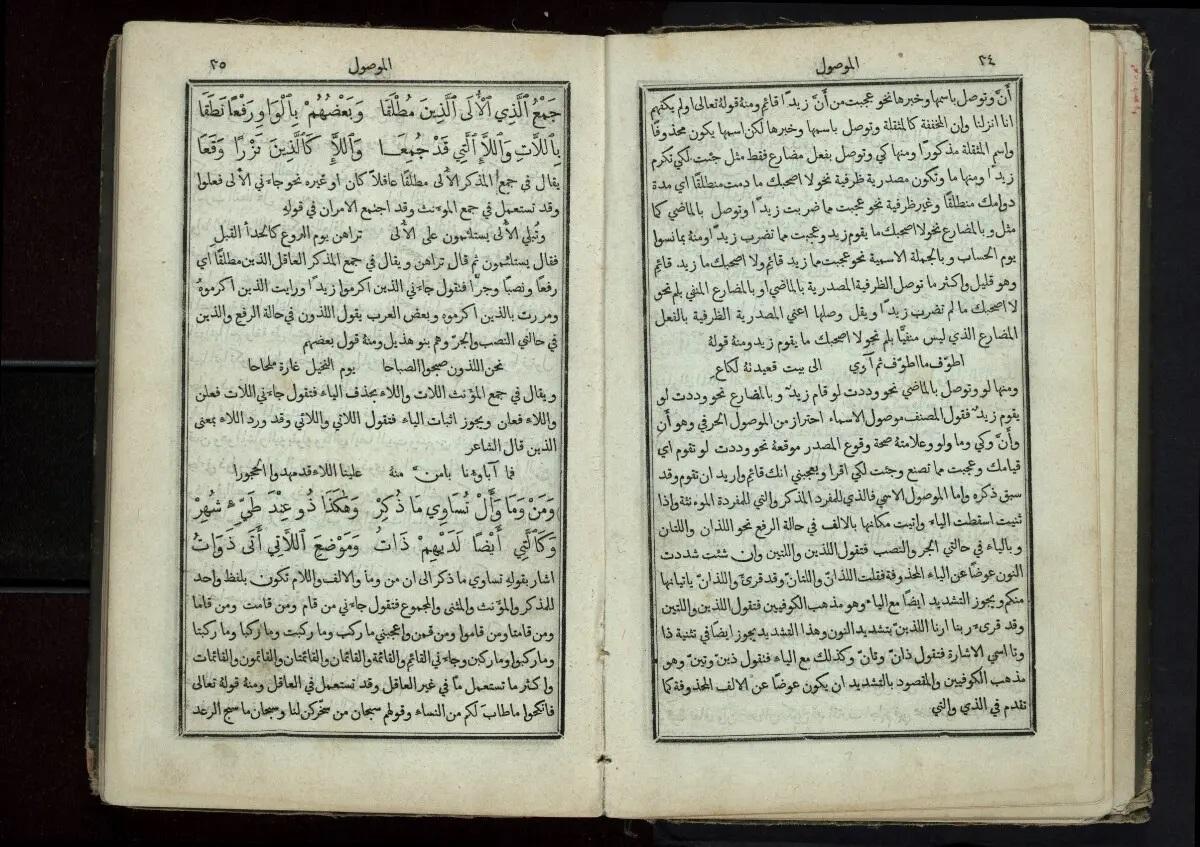 ٢٤
الموصول
أنّ وتوصل باسمها وخبرها نحو عجبت من أنّ زيدًا قائم ومنهُ قولهُ تعالى اولم يكفهم
انا انزلنا وإن المخففة كالمثقلة وتوصل باسمها وخبرها لكن اسمها يكون محذوفًا
واسم المثقلة مذكورًا ومنها كي وتوصل بفعل مضارع فقط مثل جئت لكي تكرم
زيدًا ومنها ما وتكون مصدرية ظرفية نحو لا اصحبك ما دمت منطلقًا اي مدة
دوامك منطلقًا وغير ظرفية نحو عجبت مما ضربت زيدًا وتوصل بالماضي كما
مثل وبالمضارع نحو لا اصحبك ما يقوم زيد وعجبت مما تضرب زيدًا ومنهُ بما نسوا
يوم الحساب وبالجملة الاسمية نحو عجبت مما زيد قائم ولا اصحبك ما زيد قائم
وهو قليل واكثر ما توصل الظرفية المصدرية بالماضي او بالمضارع المنفي بلم نحو
لا اصحبك ما لم تضرب زيدًا ويقل وصلها اعني المصدرية الظرفية بالفعل
المضارع الذي ليس منفيًّا بلم نحو لا اصحبك ما يقوم زيد ومنهُ قولهُ
اطوّف ما اطوّف ثم آوي الى بيت قعيدتهُ لكاع
ومنها لو وتوصل بالماضي نحو وددت لو قام زيدٌ وبالمضارع نحو وددت لو
يقوم زيدٌ فقول المصنف موصول الاسماء احتراز من الموصول الحرفي وهو أن
وأنّ وكي وما ولو وعلامتهُ صحة وقوع المصدر موقعهُ نحو وددت لو تقوم اي
قيامك وعجبت مما تصنع وجئت لكي اقرا ويعجبني انك قائم واريد ان تقوم وقد
سبق ذكره واما الموصول الاسمي فالذي للمفرد المذكر والتي للمفردة المؤنثة واذا
ثنيت اسقطت الياء واتيت مكانها بالالف في حالة الرفع نحو اللذان واللتان
وبالياء في حالتي الجر والنصب فتقول اللذين واللتين وإن شئت شددت
النون عوضًا عن الياء المحذوفة فقلت اللذانّ واللتانّ وقد قرئ واللذانّ ياتيانها
منكم ويجوز التشديد ايضًا مع الياء وهو مذهب الكوفيين فتقول اللذينّ واللتينّ
وقد قرىء ربنا ارنا اللذينّ بتشديد النون وهذا التشديد يجوز ايضًا في تثنية ذا
وتا اسمي الاشارة فتقول ذانّ وتانّ وكذلك مع الياء فتقول ذينّ وتينّ وهو
مذهب الكوفيين والمقصود بالتشديد ان يكون عوضًا عن الالف المحذوفة كما
تقدم في الذي والتي
الموصول
٢٥
جَمْعُ ٱلَّذِي ٱلْأُلَى ٱلَّذِينَ مُطْلَقَا وَبَعْضُهُمْ بِٱلْوَاوِ رَفْعًا نَطَقَا
بِٱللَّاتِ وَٱللَّاءِ ٱلَّتِي قَدْ جُمِعَا وَٱللَّاءِ كَٱلَّذِينَ نَزْرًا وَقَعَا
يقال في جمع المذكر الألى مطلقًا عاقلًا كان او غيره نحو جاءني الألى فعلوا
وقد تستعمل في جمع المؤنث وقد اجتمع الامران في قولهِ
وتبلي الألى يستلئمون على الألى تراهن يوم الروع كالحدأ القبل
فقال يستلئمون ثم قال تراهن ويقال في جمع المذكر العاقل الذين مطلقًا اي
رفعًا ونصبًا وجرًّا فتقول جاءني الذين اكرموا زيدًا ورايت الذين اكرموهُ
ومررت بالذين اكرموه وبعض العرب يقول اللذون في حالة الرفع والذين
في حالتي النصب والجرّ وهم بنو هذيل ومنهُ قول بعضهم
نحن اللذون صبحوا الصباحا يوم النخيل غارة ملحاحا
ويقال في جمع المؤنث اللات واللاء بحذف الياء فتقول جاءني اللات فعلن
واللاء فعلن ويجوز اثبات الياء فتقول اللاتي واللائي وقد ورد اللاء بمعنى
الذين قال الشاعر
فما آباؤنا بامنّ منهُ علينا اللاء قد مهدوا الحجورا
وَمَنْ وَمَا وَأَلْ تُسَاوِي مَا ذُكِرْ وَهٰكَذَا ذُو عِنْدَ طَيِّءٍ شُهِرْ
وَكَٱلَّتِي أَيْضًا لَدَيْهِمْ ذَاتُ وَمَوْضِعَ ٱللَّاتِي أَتَى ذَوَاتُ
اشار بقولهِ تساوي ما ذكر الى ان من وما والالف واللام تكون بلفظ واحد
للمذكر والمؤنث والمثنى والمجموع فتقول جاءني من قام ومن قامت ومن قاما
ومن قامتا ومن قاموا ومن قمن واعجبني ما ركب وما ركبت وما ركبا وما ركبتا
وما ركبوا وما ركبن وجاءني القائم والقائمة والقائمان والقائمتان والقائمون والقائمات
واكثر ما تستعمل ما في غير العاقل وقد تستعمل في العاقل ومنهُ قولهُ تعالى
فانكحوا ما طاب لكم من النساء وقولهم سبحان من سخركن لنا وسبحان ما سبح الرعد